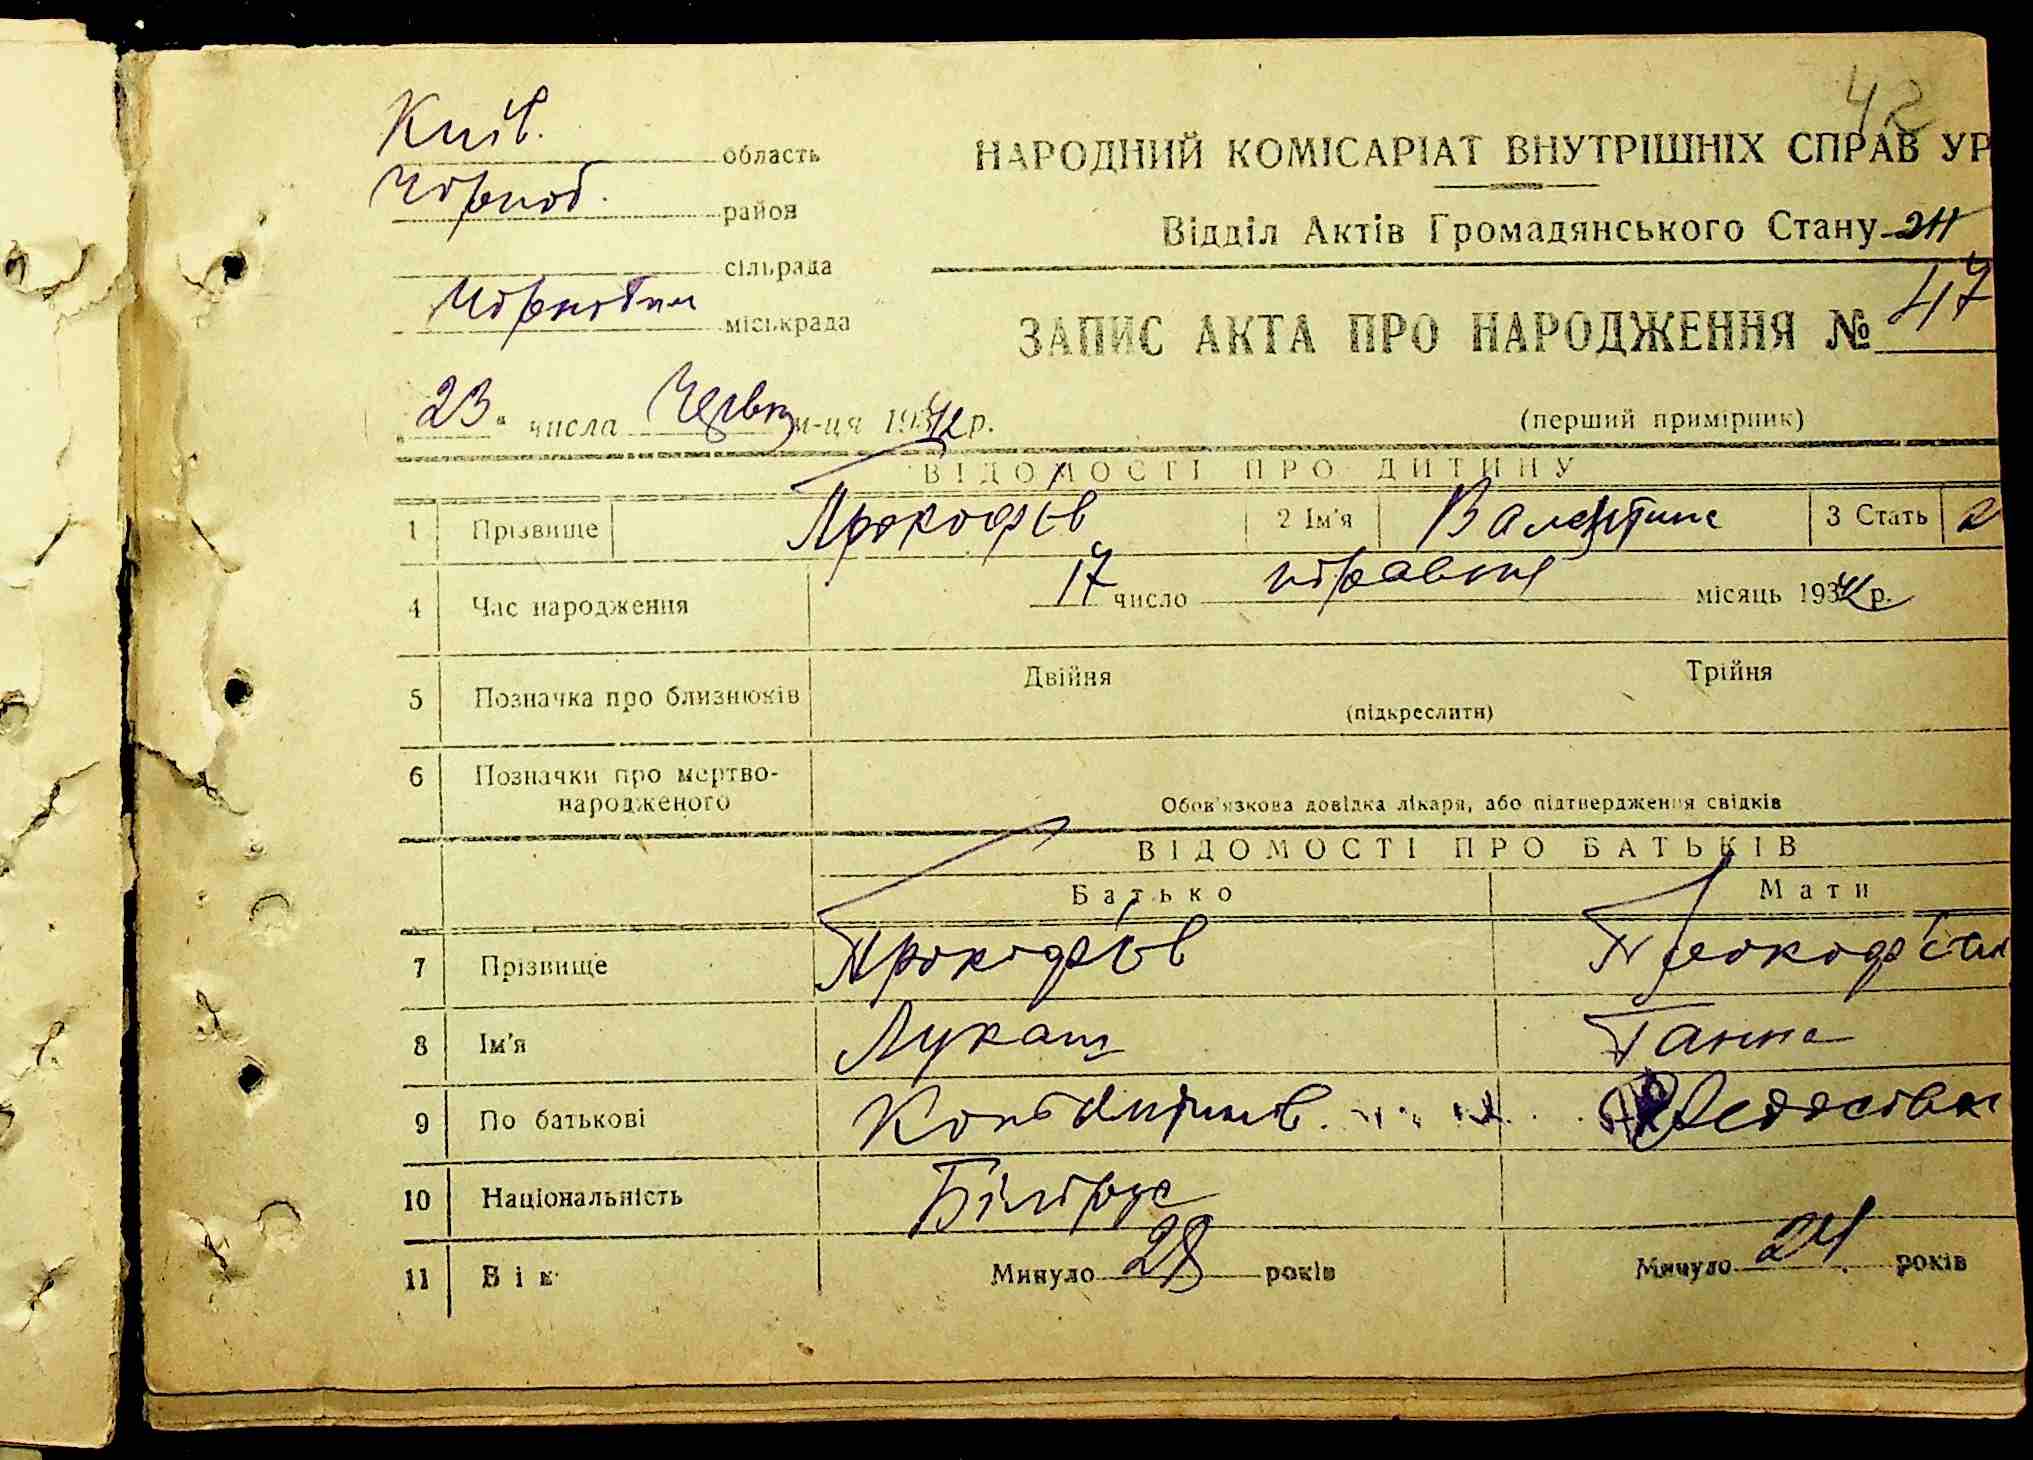 42
Київ. область
Чорноб. район
сільрада
Чорнобил міськрада
НАРОДНИЙ КОМІСАРІАТ ВНУТРІШНІХ СПРАВ УР
Відділ Актів Громадянського Стану
ЗАПИС АКТА ПРО НАРОДЖЕННЯ № 47
„23" числа Червн м-ця 1942 р.
(перший примірник)
ВІДОМОСТІ ПРО ДИТИНУ
1 Прізвище Прокоф'єв 2 Ім'я Валентина 3 Стать
4 Час народження 17 число травня місяць 1942 р.
5 Позначка про близнюків Двійня Трійня
(підкреслити)
6 Позначки про мертво-
народженого Обов'язкова довідка лікаря, або підтвердження свідків
ВІДОМОСТІ ПРО БАТЬКІВ
Батько Мати
7 Прізвище Прокоф'єв Прокоф'єва
8 Ім'я Лукаш Ганна
9 По батькові Констянтинов. Федосівна
10 Національність Білорус
11 Вік Минуло 28 років Минуло 24 років